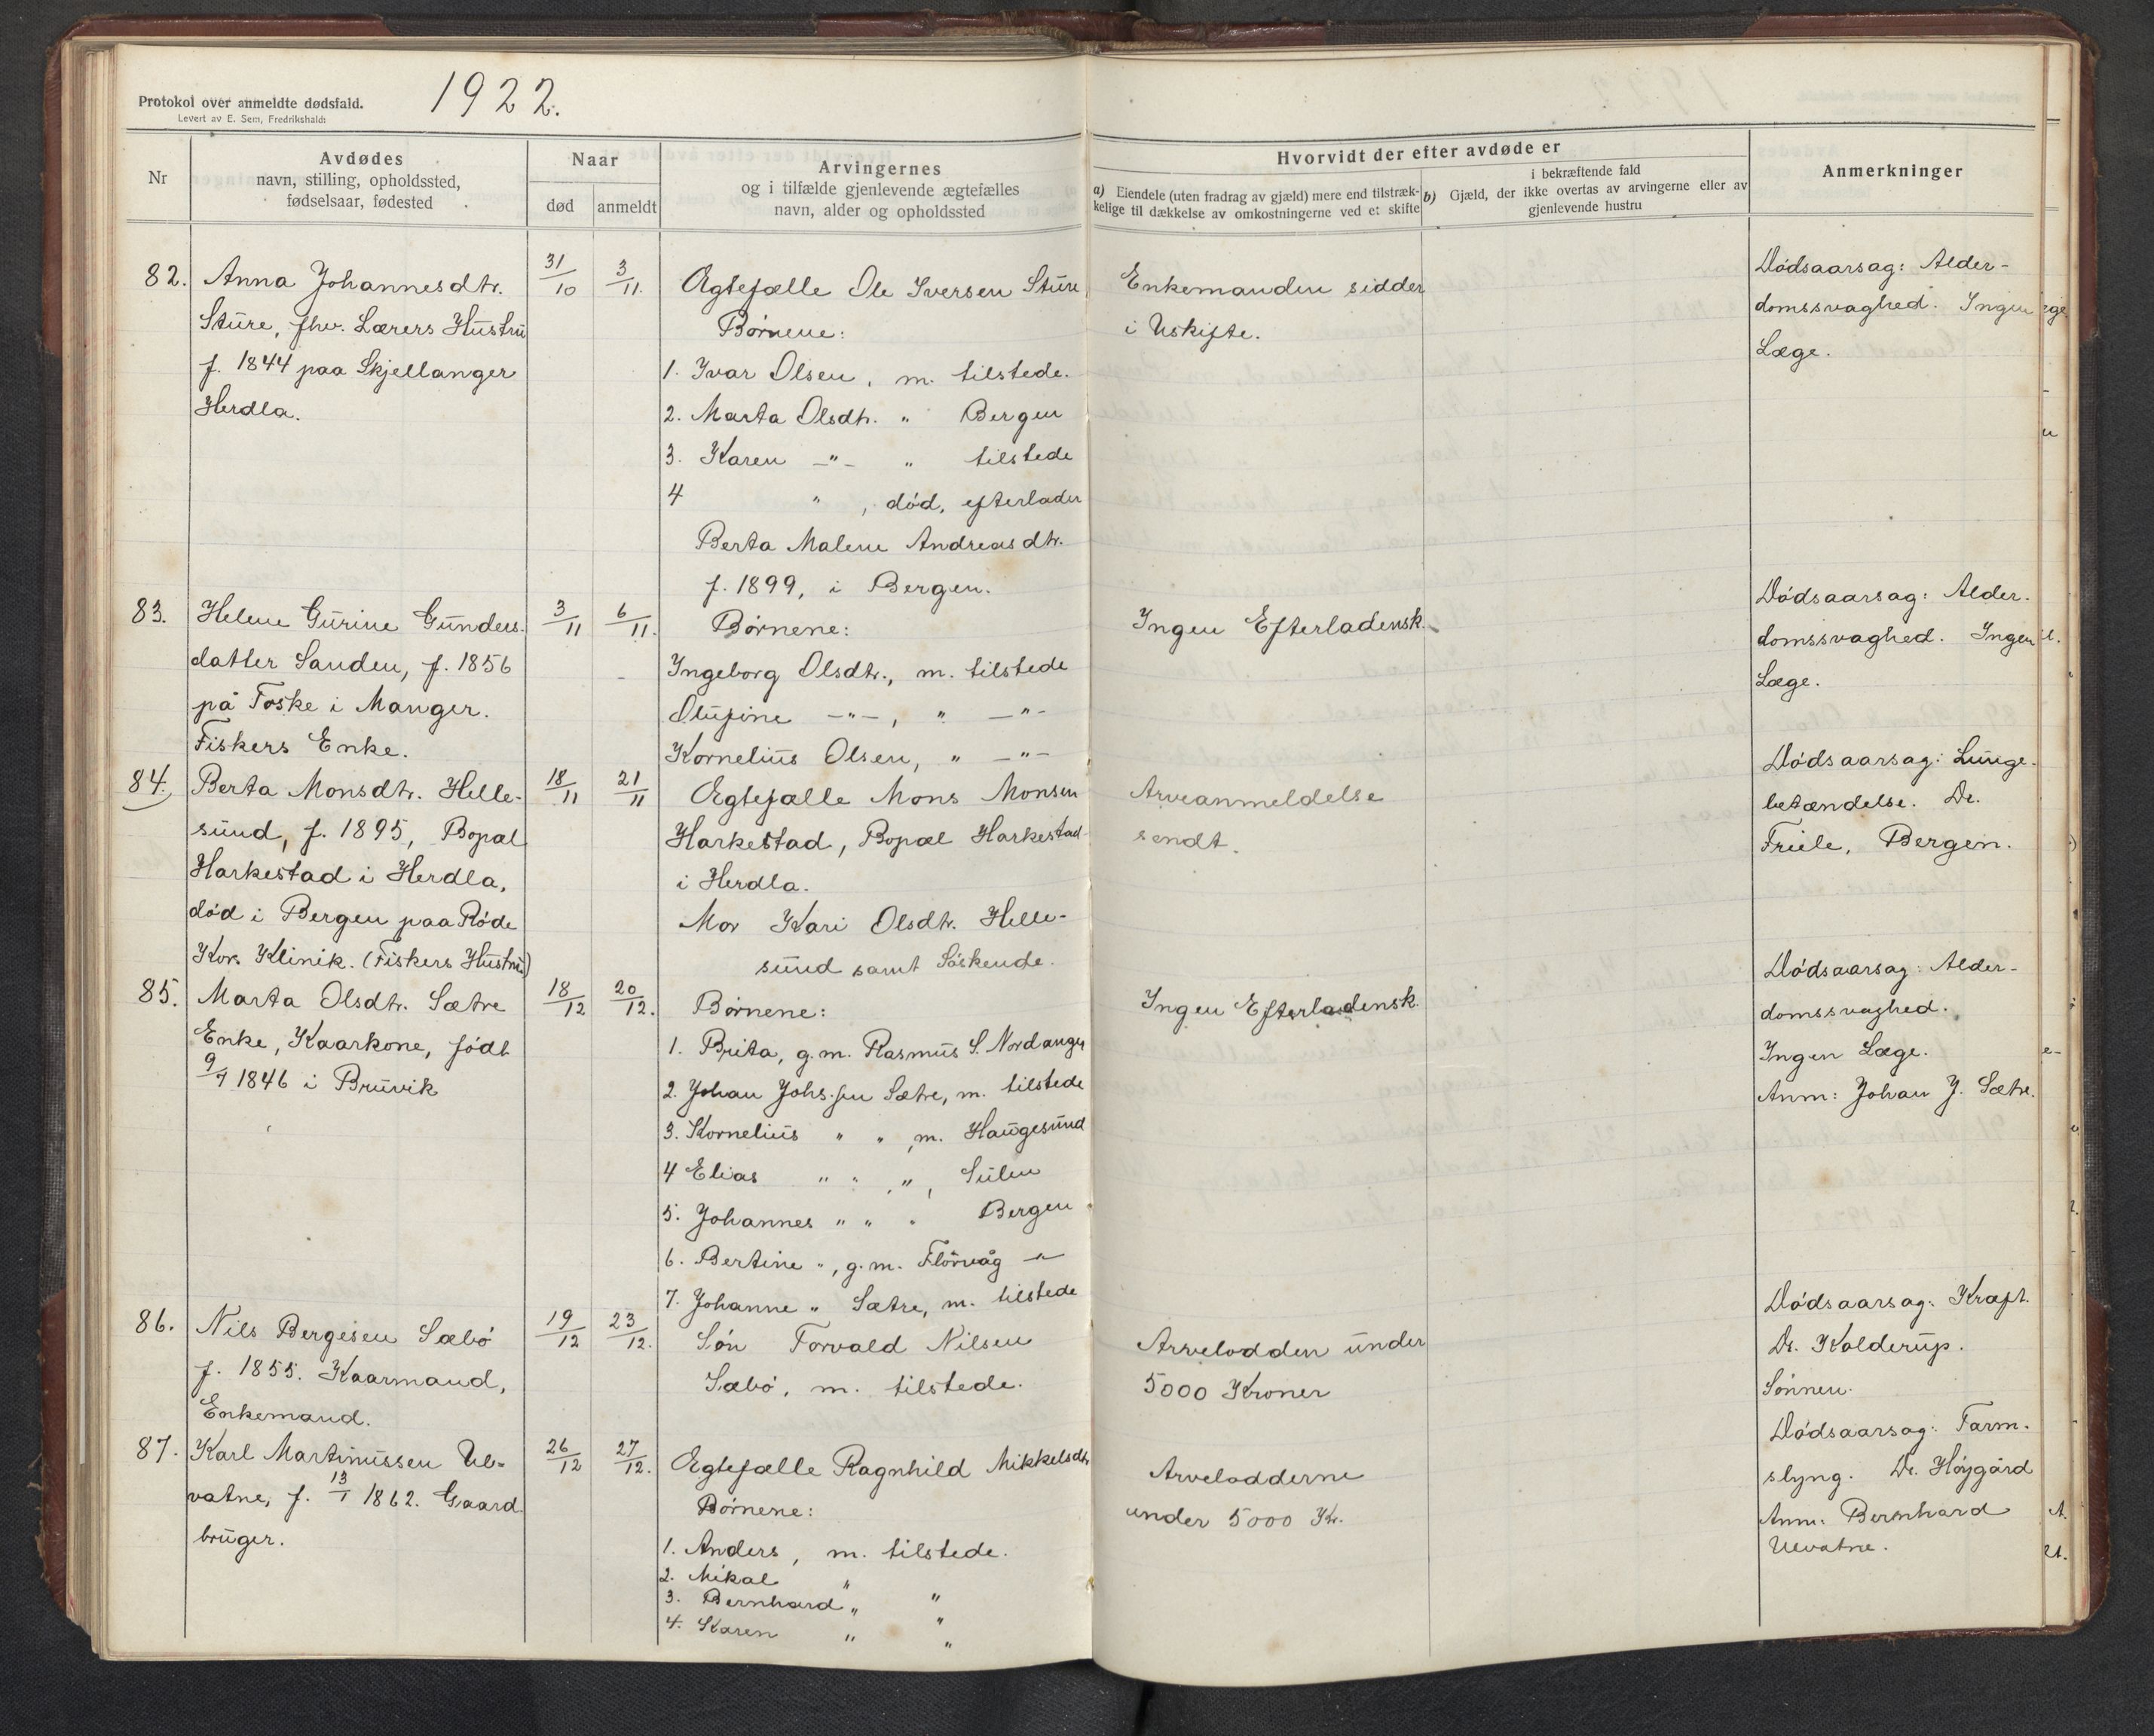 Protokol over anmeldte dødsfald.
Levert av E. Sem, Fredrikshald.
1922.
Nr
Avdødes
navn, stilling, opholdssted,
fødselsaar, fødested
Naar
død
anmeldt
Arvingernes
og i tilfælde gjenlevende ægtefælles
navn, alder og opholdssted
Hvorvidt der efter avdøde er
a) Eiendele (uten fradrag av gjæld) mere end tilstræk-
kelige til dækkelse av omkostningerne ved et skifte
i bekræftende fald
b) Gjæld, der ikke overtas av arvingerne eller av
gjenlevende hustru
Anmerkninger
82.
Anna Johannesdtr.
Sture, fhv. Lærers Hustru
f. 1844 paa Skjellanger
Herdla.
31/10
3/11.
Ægtefælle Ole Iversen Sture
Børnene:
1. Ivar Olsen, m. tilstede.
2. Marta Olsdtr. " Bergen
3. Karen -"- " tilstede
4 " , død, efterlader
Berta Malene Andreasdtr.
f. 1899, i Bergen.
Enkemanden sidder
i Uskifte.
Dødsaarsag: Alder-
domssvaghed. Ingen
Læge.
83.
Helene Gurine Gunders-
datter Sanden, f. 1856
på Toske i Manger.
Fiskers Enke.
3/11
6/11.
Børnene:
Ingeborg Olsdtr., m. tilstede
Olufine -"-, " -"-
Kornelius Olsen, " -"-
Ingen Efterladensk.
Dødsaarsag: Alder-
domssvaghed. Ingen
Læge.
84.
Berta Monsdtr. Helle-
sund, f. 1895, Bopæl
Harkestad i Herdla,
død i Bergen paa Røde
Kors Klinik. (Fiskers Hustru)
18/11
21/11
Ægtefælle Mons Monsen
Harkestad, Bopæl Harkestad
i Herdla.
Mor Kari Olsdtr. Helle-
sund samt Søskende.
Arveanmeldelse
sendt.
Dødsaarsag: Lunge-
betændelse. Dr.
Friele, Bergen.
85.
Marta Olsdtr. Sætre
Enke, Kaarkone, født
9/7 1846 i Bruvik
18/12
20/12.
Børnene:
1. Brita, g.m. Rasmus S. Nordanger
2. Johan Johs.sen Sætre, m. tilstede
3. Kornelius " " , m. Haugesund
4 Elias " " " , Sulen
5. Johannes " " " Bergen
6. Bertine ", g.m. Florvåg -"-
7. Johanne " Sætre, m. tilstede
Ingen Efterladensk.
Dødsaarsag: Alder-
domssvaghed.
Ingen Læge.
Anm: Johan J. Sætre.
86.
Nils Bergesen Sæbø
f. 1855. Kaarmand,
Enkemand.
19/12
23/12.
Søn Torvald Nilsen
Sæbø, m. tilstede.
Arvelodden under
5000 Kroner
Dødsaarsag: Kræft.
Dr. Kolderup.
Sønnen.
87.
Karl Martinussen Ul-
vatne, f. 13/1 1862. Gaard-
bruger.
26/12
27/12.
Egtefælle Ragnhild Mikkelsdtr.
Børnene:
1. Anders, m. tilstede.
2. Mikal " "
3. Bernhard " "
4. Karen " "
Arvelodderne
under 5000 Kr.
Dødsaarsag: Tarm-
slyng. Dr. Høygård
Anm: Bernhard
Ulvatne.